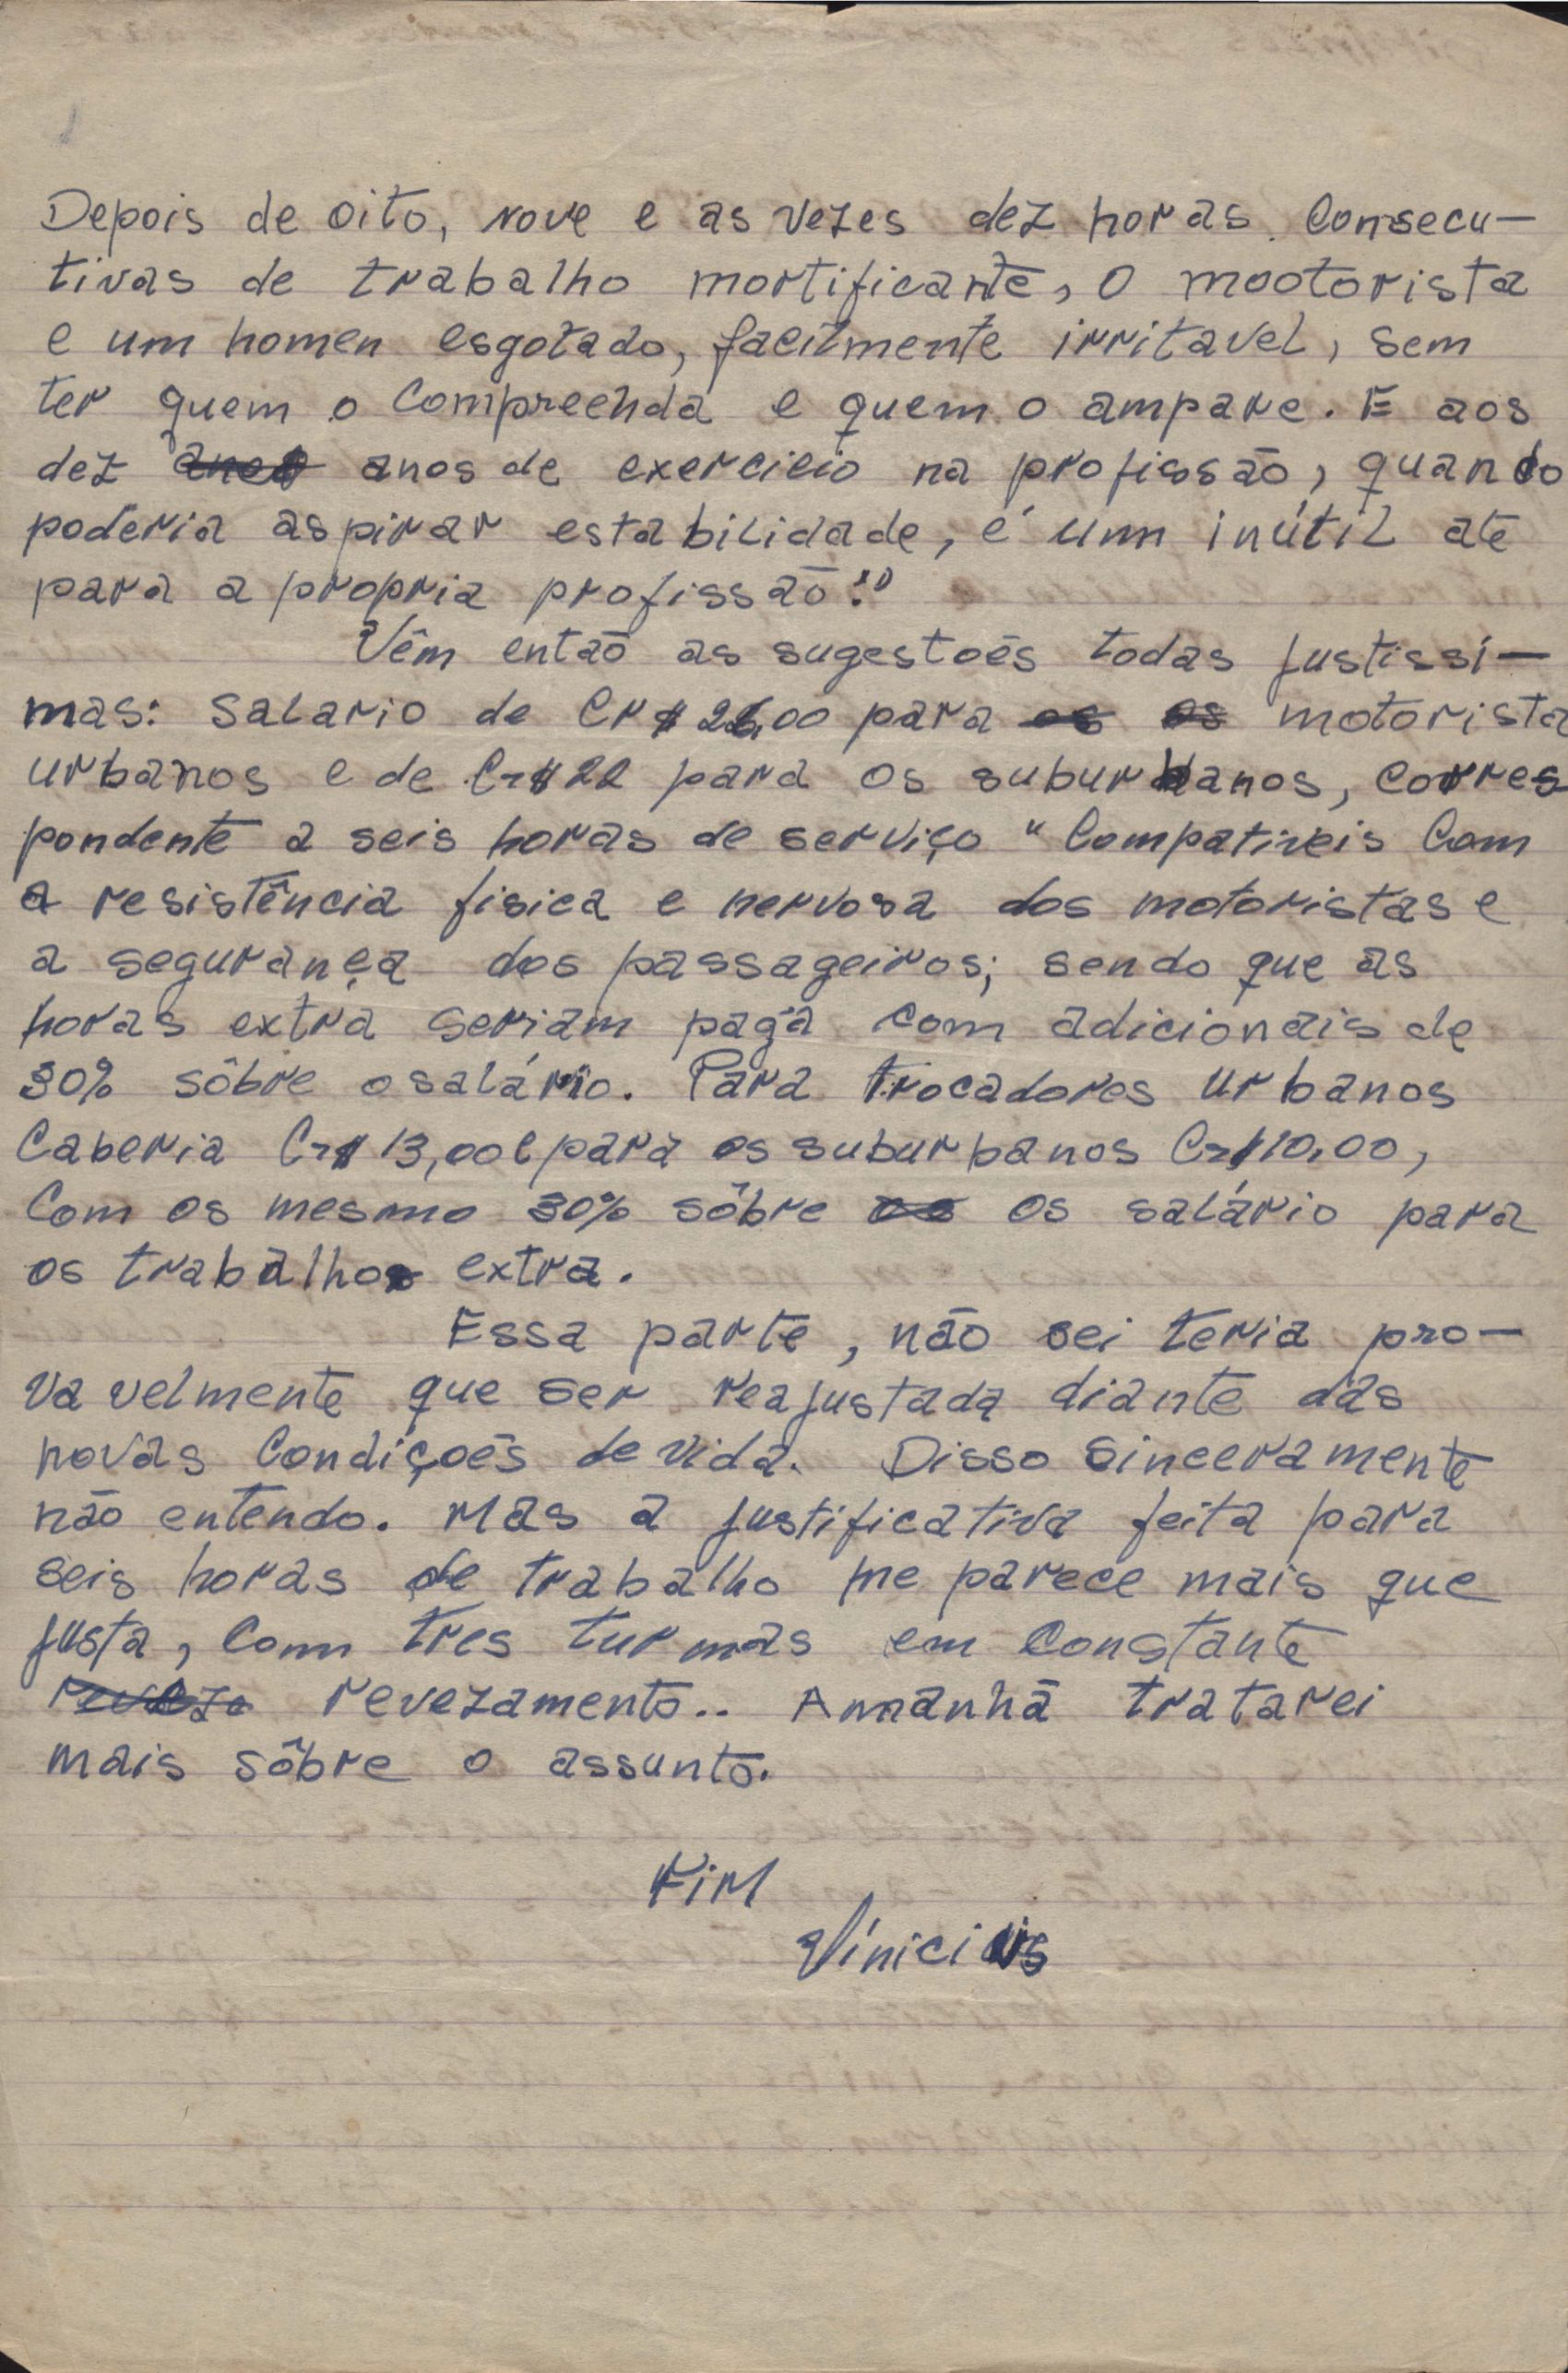 Depois de oito, nove e as vezes dez horas consecu-
tivas de trabalho mortificante, o mootorista
e um homen esgotado, facilmente irritavel, sem
ter quem o compreenda e quem o ampare. E aos
dez anos anos de exercicio na profissão, quando
poderia aspirar estabilidade, é umn inútil ate
para a propria profissão!"
Vêm então as sugestoẽs todas justissi-
mas: salario de Cr$ 26,00 para os os motorista
urbanos e de Cr$22 para os suburbanos, corres
pondente a seis horas de serviço "compativeis com
a resistência fisica e nervosa dos motoristas e
a segurança dos passageiros; sendo que as
horas extra seriam paga com adicionais de
30% sôbre o salário. Para trocadores urbanos
caberia Cr$ 13,00 e para os suburbanos Cr$10,00,
com os mesmo 30% sôbre os os salário para
os trabalhos extra.
Essa parte, não sei teria pro-
vavelmente que ser reajustada diante das
novas condiçoẽs de vida. Disso sinceramente
não entendo. Mas a justificativa feita para
seis horas de trabalho me parece mais que
justa, comn tres turmas em constante
reveza revezamento.. Amanhã tratarei
mais sôbre o assunto.
FiM
Vínicius